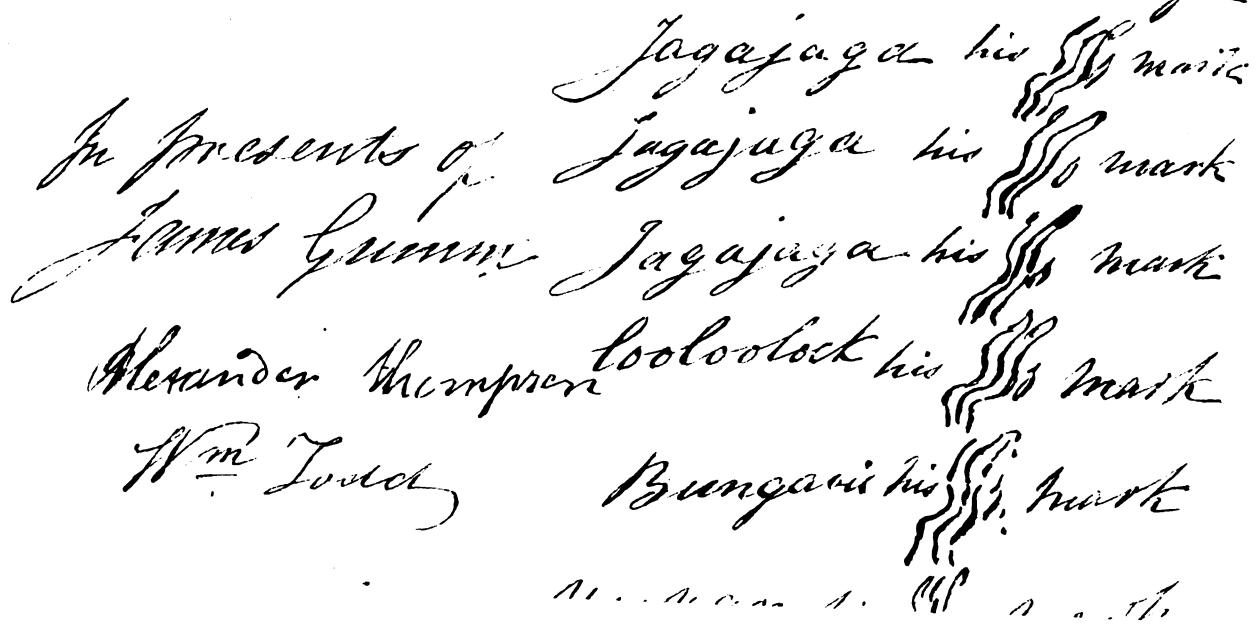 Jagajaga his mark
In presents of Jagajaga his mark
James Gumm Jagajaga his mark
Alexander Thompson Cooloolock his mark
Wm Todd Bungarie his mark